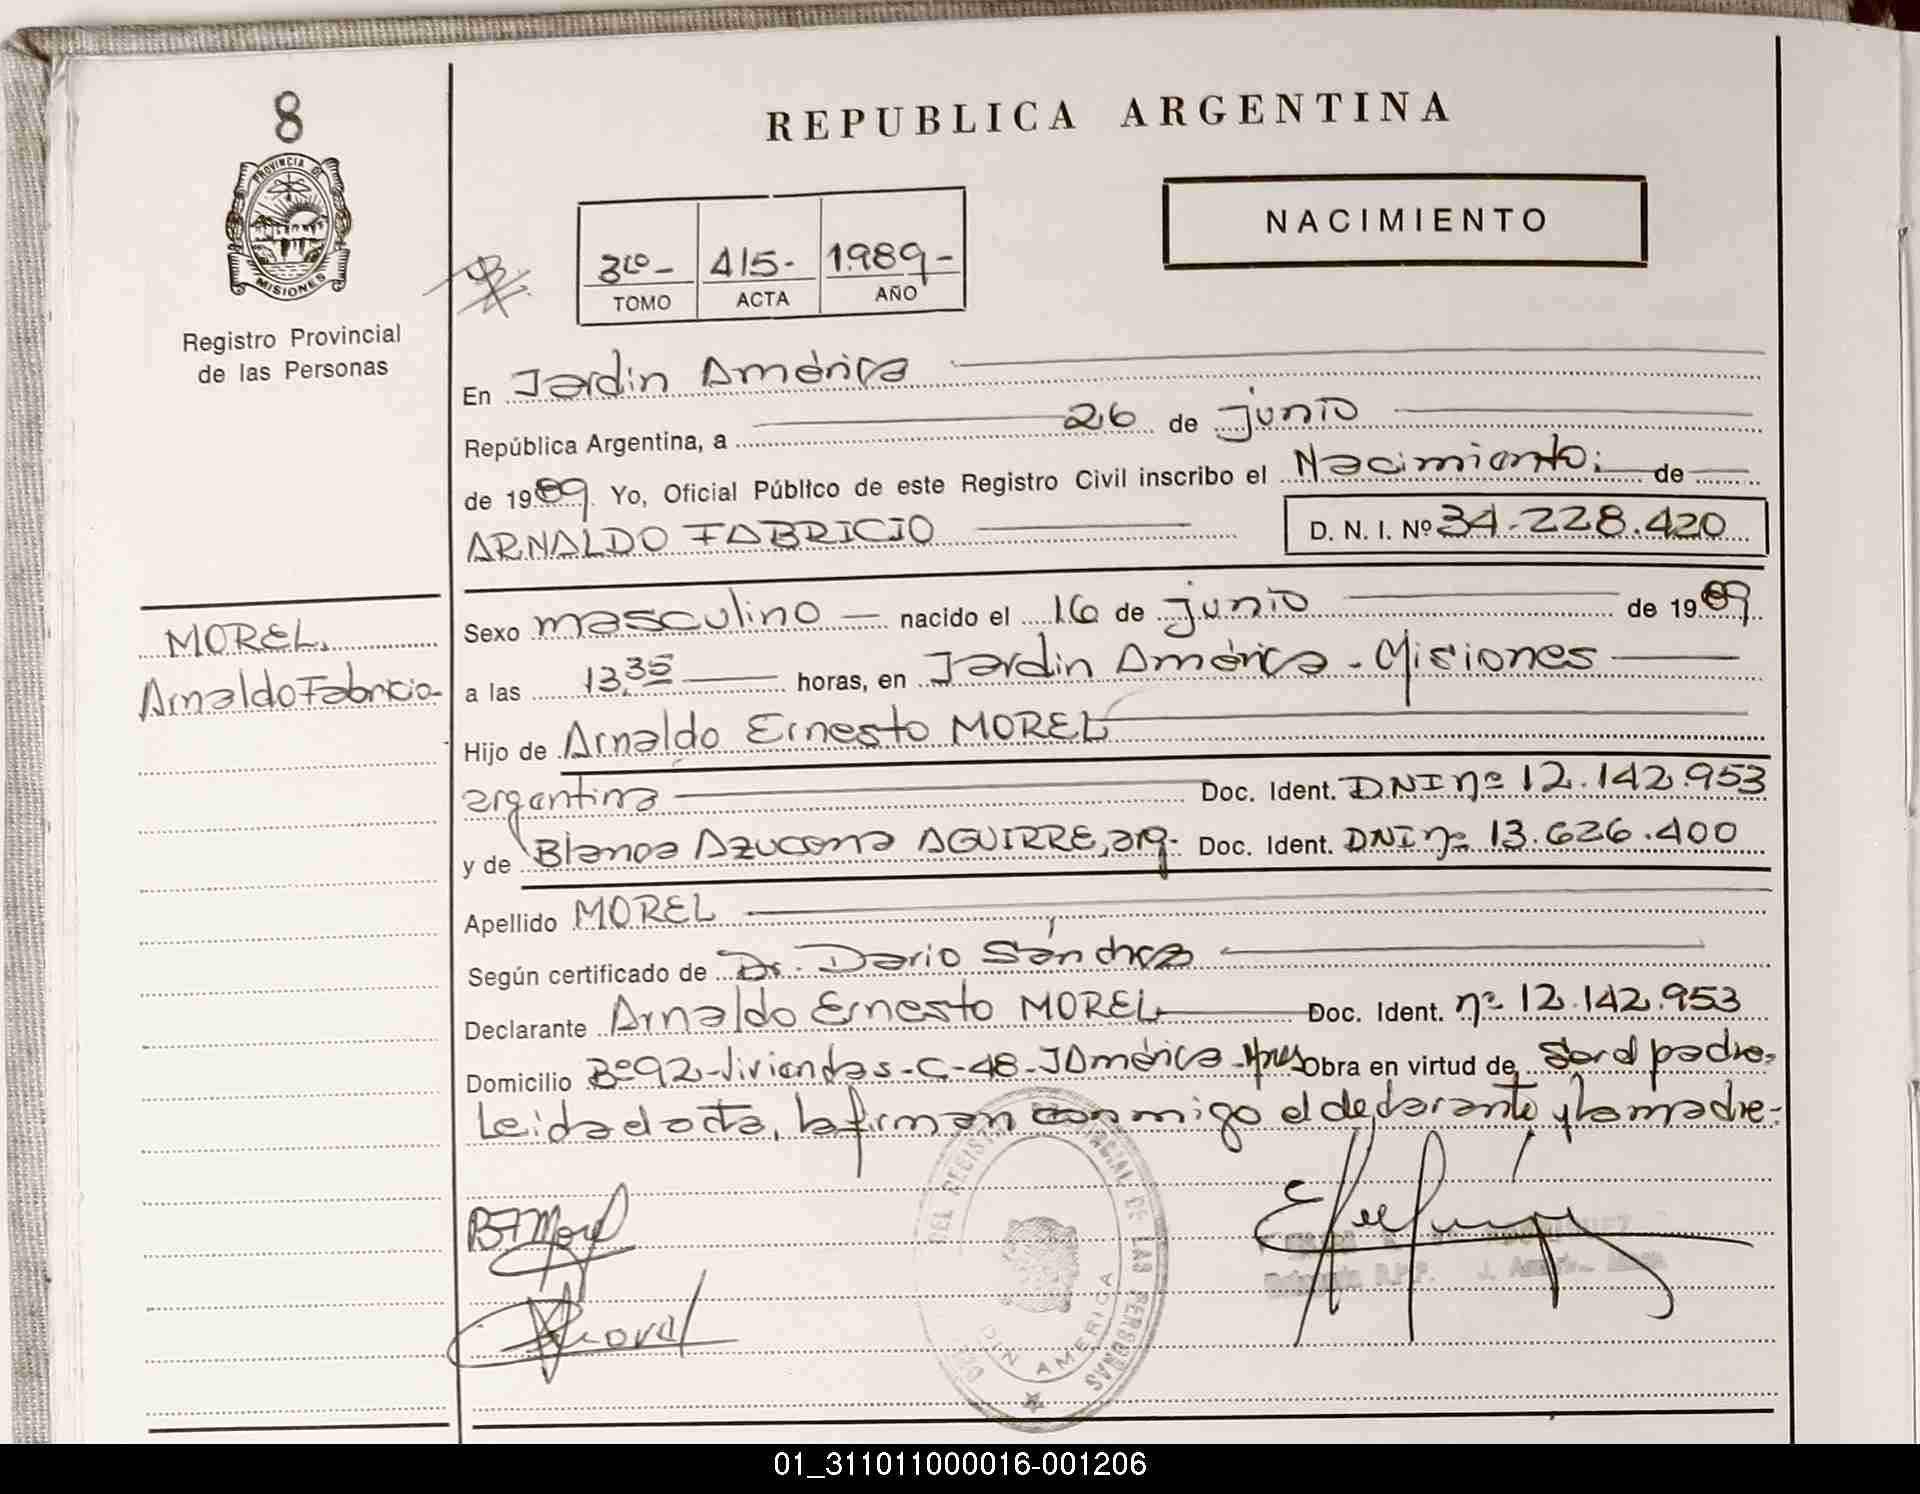 8
PROVINCIA DE
MISIONES
Registro Provincial
de las Personas
REPUBLICA ARGENTINA
NACIMIENTO
3ro - 415 - 1989 -
TOMO ACTA AÑO
En Jardin América
República Argentina, a 26 de junio
de 1989. Yo, Oficial Público de este Registro Civil inscribo el Nacimiento: de
ARNALDO FABRICIO D. N. I. Nº 34.228.420
Sexo masculino — nacido el 16 de junio de 1989
MOREL,
Arnaldo Fabricio-
a las 13,35 horas, en Jardin América - Misiones
Hijo de Arnaldo Ernesto MOREL
argentina Doc. Ident. DNI nº 12.142.953
y de Blanca Azucena AGUIRRE, arg- Doc. Ident. DNI nº 13.626.400
Apellido MOREL
Según certificado de Dr. Dario Sánchez
Declarante Arnaldo Ernesto MOREL Doc. Ident. nº 12.142.953
Domicilio Bº 92-viviendas-C-48-JAmérica-Mnes Obra en virtud de Ser el padre-
Leida el acta, la firman conmigo el declarante y la madre-
DEL REGISTRO PROVINCIAL DE LAS PERSONAS
JARDIN AMERICA
01_311011000016-001206